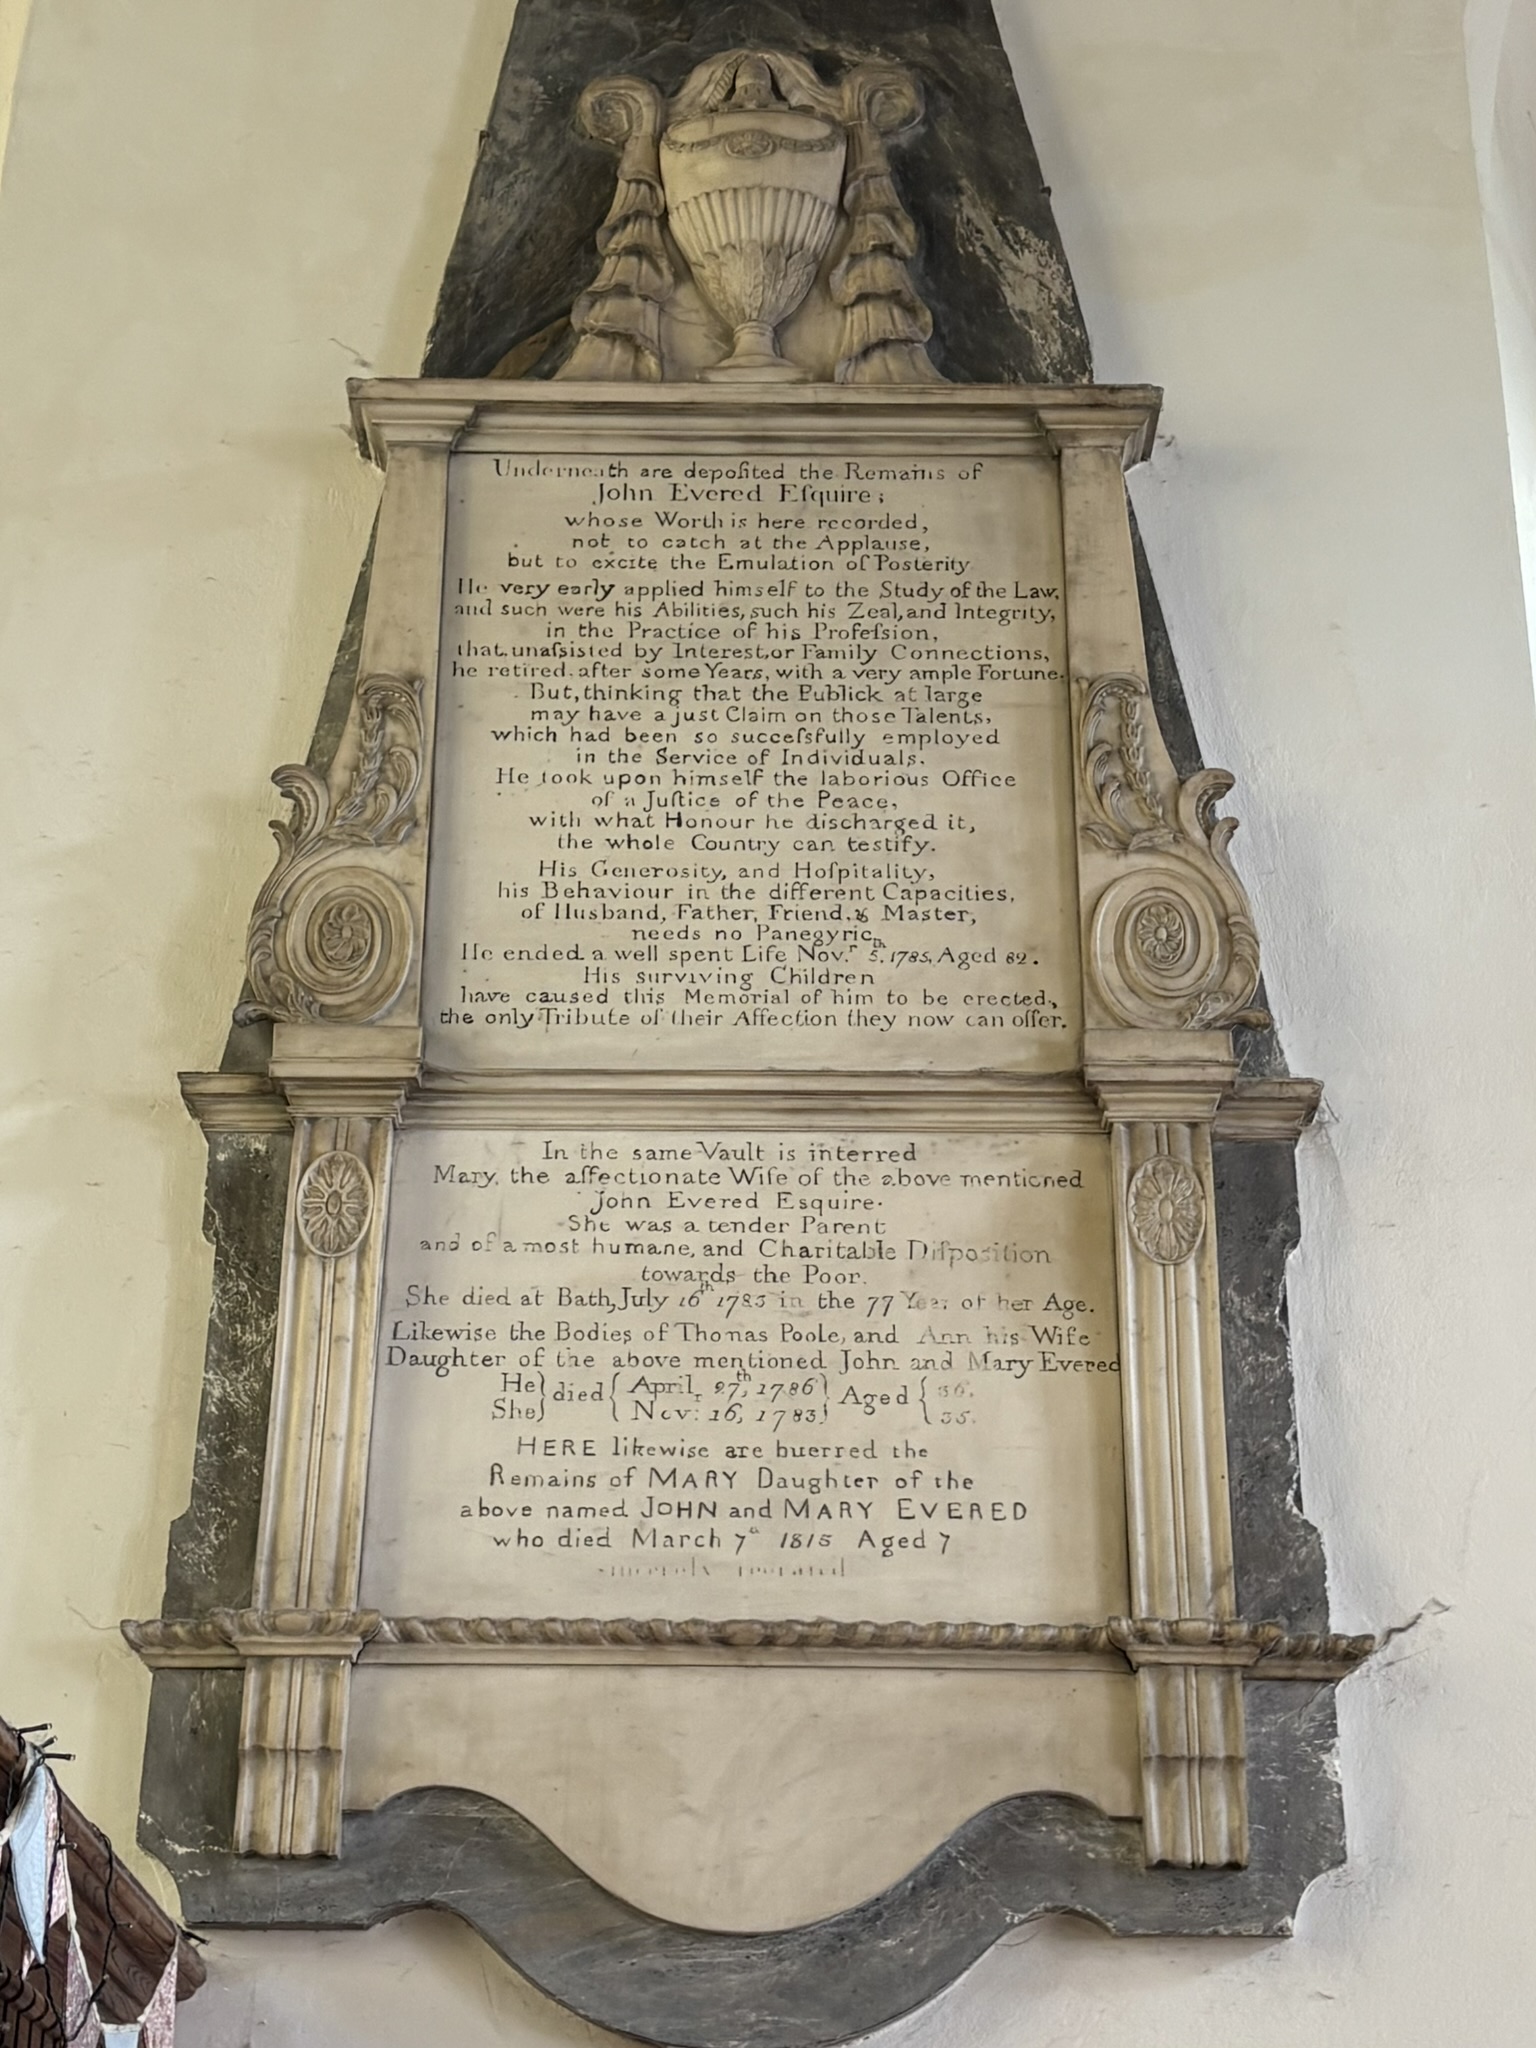 Underneath are depoſited the Remains of
John Evered Eſquire;
whose Worth is here recorded,
not to catch at the Applause,
but to excite the Emulation of Posterity
He very early applied himself to the Study of the Law,
and such were his Abilities, such his Zeal, and Integrity,
in the Practice of his Profeſsion,
that, unaſsisted by Interest, or Family Connections,
he retired, after some Years, with a very ample Fortune.
But, thinking that the Publick at large
may have a just Claim on those Talents,
which had been so succeſsfully employed
in the Service of Individuals.
He took upon himself the laborious Office
of a Juſtice of the Peace,
with what Honour he discharged it,
the whole Country can testify.
His Generosity, and Hoſpitality,
his Behaviour in the different Capacities,
of Husband, Father, Friend, & Master,
needs no Panegyric,
He ended a well spent Life Nov.r 5th, 1785, Aged 82.
His surviving Children
have caused this Memorial of him to be erected,
the only Tribute of their Affection they now can offer.
In the same Vault is interred
Mary, the affectionate Wife of the above mentioned
John Evered Esquire.
She was a tender Parent
and of a most humane, and Charitable Diſposition
towards the Poor.
She died at Bath, July 16th 1785 in the 77 Year of her Age.
Likewise the Bodies of Thomas Poole, and Ann his Wife
Daughter of the above mentioned John and Mary Evered
He } died { April 27th, 1786 } Aged { 36.
She } Nov.r 16, 1783 } { 35.
HERE likewise are buerred the
Remains of MARY Daughter of the
above named JOHN and MARY EVERED
who died March 7th 1815 Aged 7
sincerely